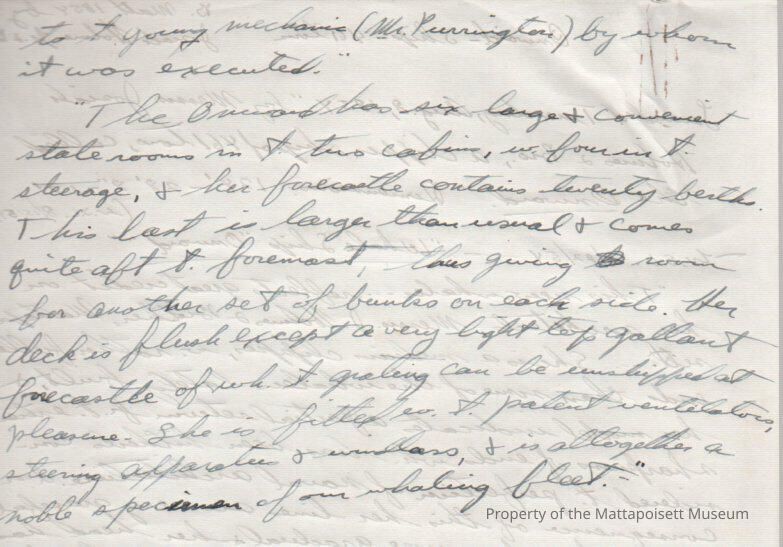 to t. young mechanic (Mr. Purrington) by whom
it was executed."
"The Onward has six large & convenient
state rooms in t. two cabins, w. four in t.
steerage, & her forecastle contains twenty berths.
This last is larger than usual & comes
quite aft t. foremast, thus giving room
for another set of bunks on each side. Her
deck is flush except a very light top gallant
forecastle of wh. t. grating can be unshipped at
pleasure. She is fitted w. t. patent ventilators,
steering apparatus & windlass, & is altogether a
noble specimen of our whaling fleet."
Property of the Mattapoisett Museum